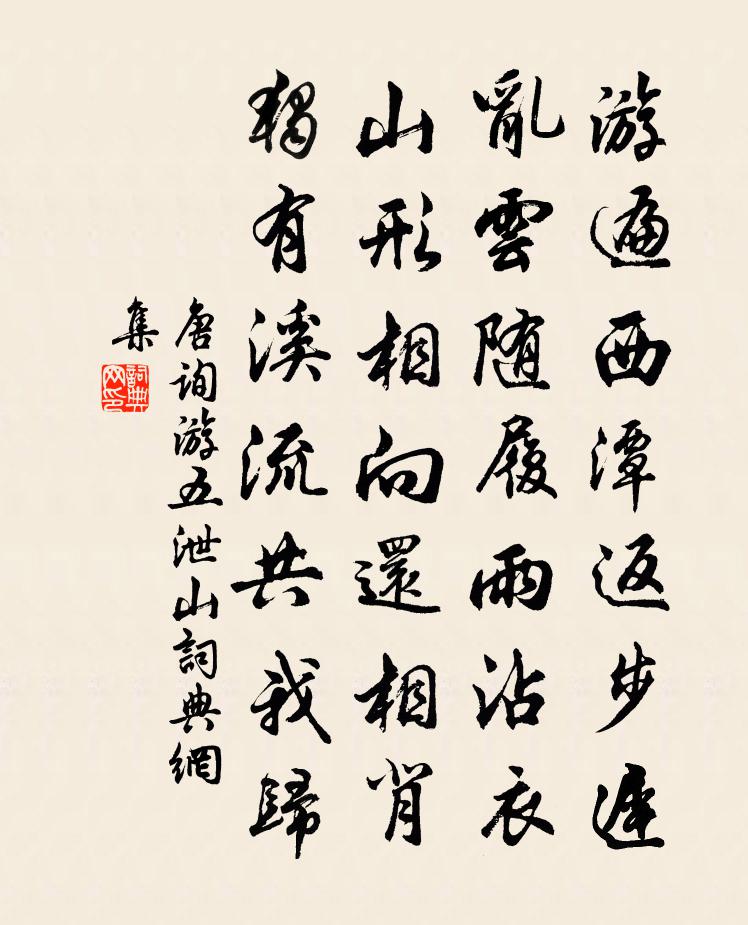 游遍西潭返步遲
亂雲随履雨沾衣
山形相向還相背
獨有溪流共我歸
唐詢游五泄山詞典網
集
詞典
网印